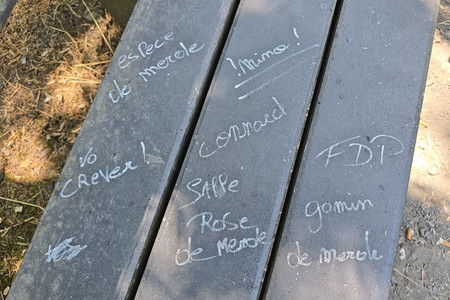 espece
de merde
vo
crever!
!mima!
connard
Salle
Rose
de merde
FDP
gamin
de merde